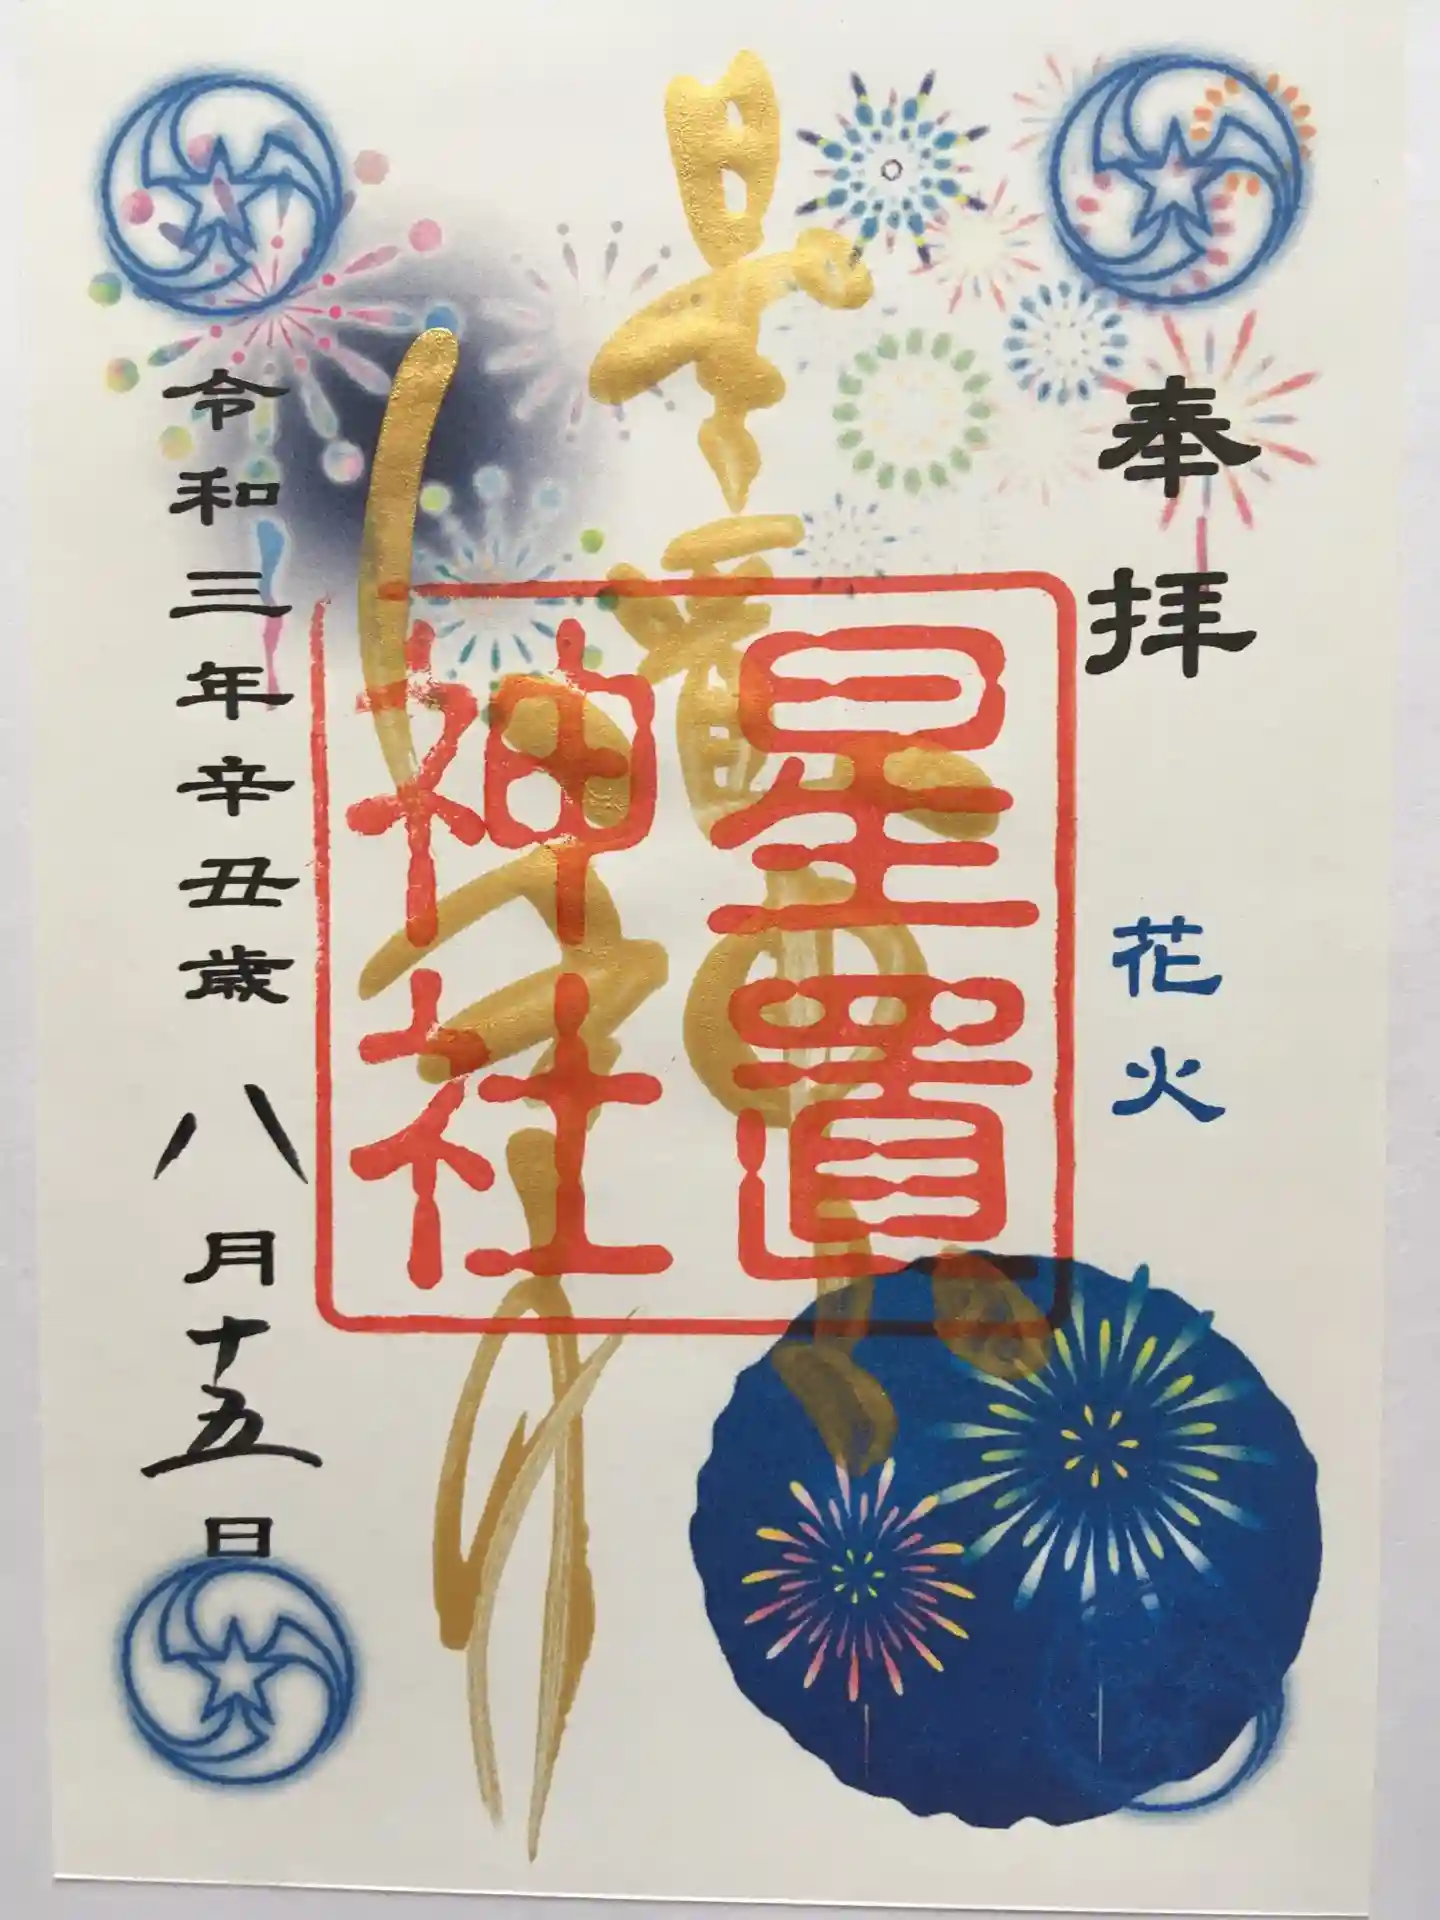 奉拝
花火
星置神社
令和三年辛丑歳 八月十五日